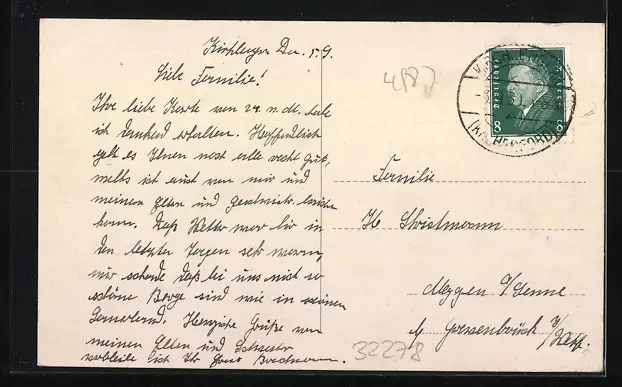 Kirchlengern Den 1.9.
Liebe Familie!
Ihre liebe Karte vom 24. v. M. habe
ich dankend erhalten. Hoffentlich
geht es Ihnen noch alle recht gut,
welches ich auch von mir und
meinen Eltern und Geschwister berichten
kann. Das Wetter war hir in
den letzten Tagen sehr warm,
nur schade daß bei uns nicht so
schöne Berge sind wie in
Sauerland. Herzliche Grüße von
meinen Eltern und Schwester
verbleibe ich Ihr
4987
Deutsches Reich
8 8
(KR. HERFORD)
Familie
H. Christmann
Meggen i/Lenne
b/ Grevenbrück i/Westf.
32278